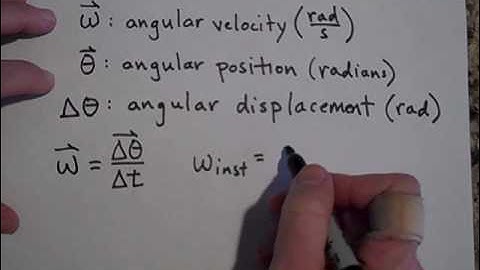 ω⃗ : angular velocity (rad/s)
θ⃗ : angular position (radians)
Δθ : angular displacement (rad)
ω⃗ = Δθ⃗/Δt ω inst =